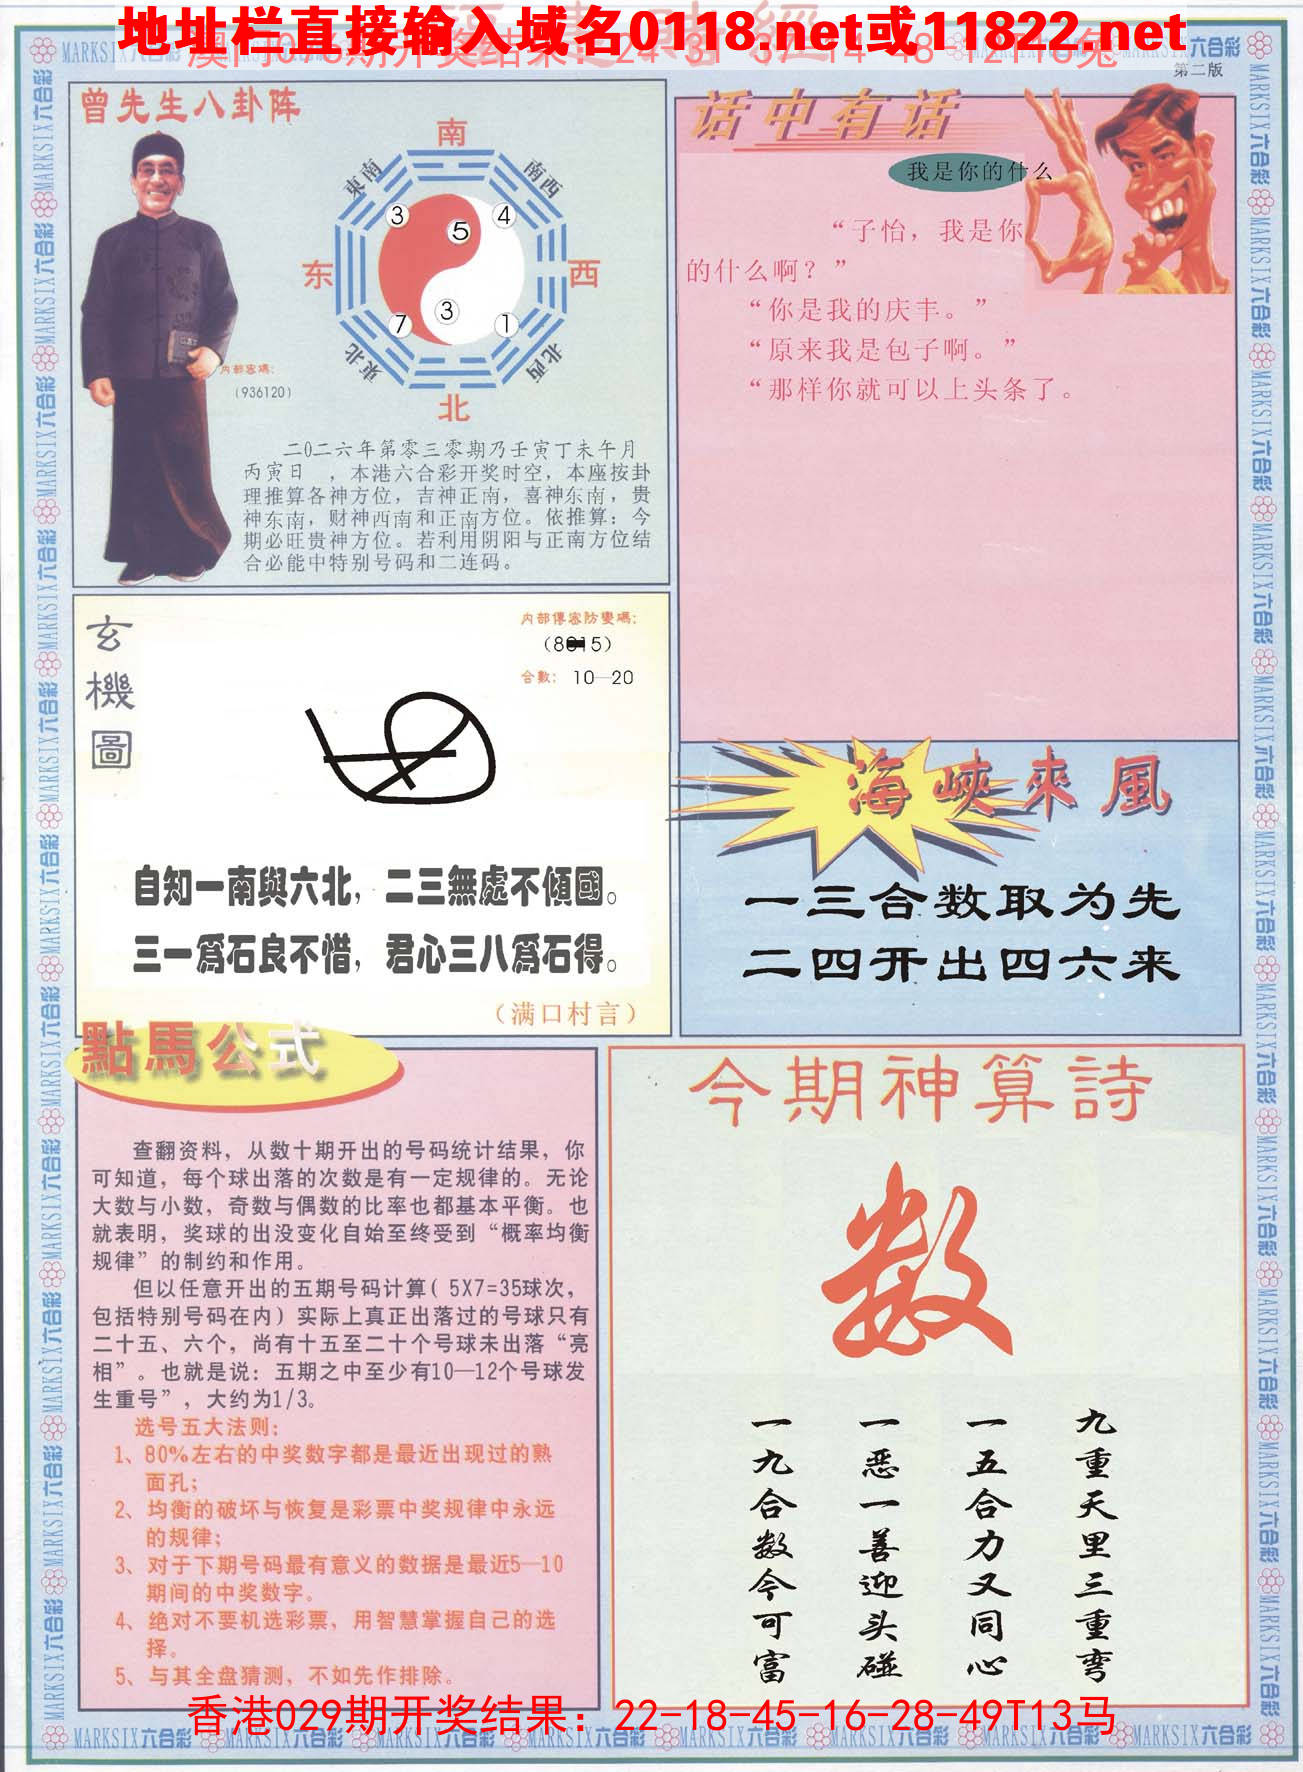 地址栏直接输入域名0118.net或11822.net
第二版
曾先生八卦阵
南
東南
南西
3
5
4
东
西
7
3
1
東北
北西
北
内部密碼:
(936120)
二0二六年第零三零期乃壬寅丁未午月
丙寅日 ，本港六合彩开奖时空，本座按卦
理推算各神方位，吉神正南，喜神东南，贵
神东南，财神西南和正南方位。依推算：今
期必旺贵神方位。若利用阴阳与正南方位结
合必能中特别号码和二连码。
话中有话
我是你的什么
“子怡，我是你
的什么啊？”
“你是我的庆丰。”
“原来我是包子啊。”
“那样你就可以上头条了。
玄機圖
内部傳密防變碼:
合數: 10—20
自知一南與六北，二三無處不傾國。
三一爲石良不惜，君心三八爲石得。
（满口村言）
海峽來風
一三合数取为先
二四开出四六来
點馬公式
查翻资料，从数十期开出的号码统计结果，你
可知道，每个球出落的次数是有一定规律的。无论
大数与小数，奇数与偶数的比率也都基本平衡。也
就表明，奖球的出没变化自始至终受到“概率均衡
规律”的制约和作用。
但以任意开出的五期号码计算( 5X7=35球次，
包括特别号码在内）实际上真正出落过的号球只有
二十五、六个，尚有十五至二十个号球未出落“亮
相”。也就是说：五期之中至少有10—12个号球发
生重号”，大约为1/3。
选号五大法则:
1、80%左右的中奖数字都是最近出现过的熟
面孔;
2、均衡的破坏与恢复是彩票中奖规律中永远
的规律;
3、对于下期号码最有意义的数据是最近5—10
期间的中奖数字。
4、绝对不要机选彩票，用智慧掌握自己的选
择。
5、与其全盘猜测，不如先作排除。
今期神算詩
数
九重天里三重弯
一五合力又同心
一恶一善迎头碰
一九合数今可富
香港029期开奖结果：22-18-45-16-28-49T13马
MARKSIX六合彩